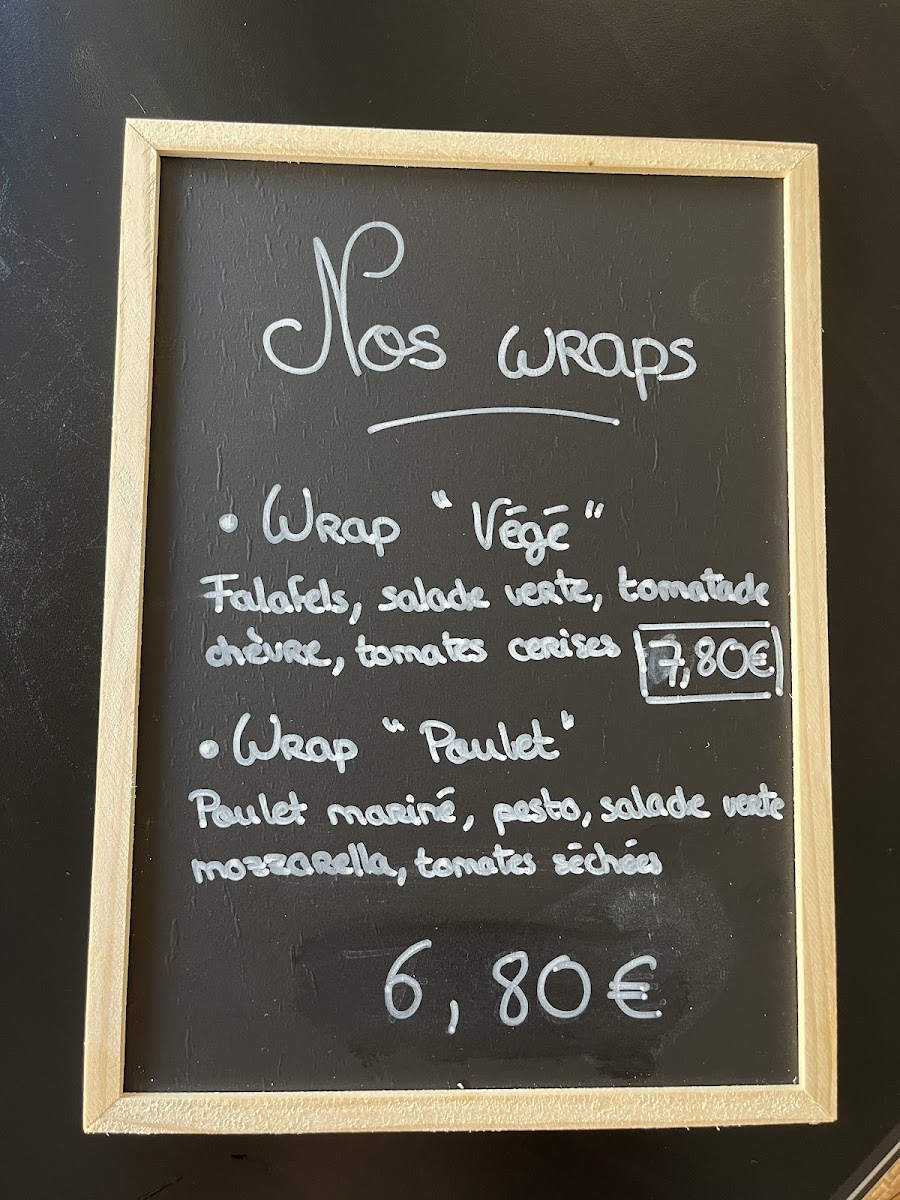 Nos wraps
• Wrap "Végé"
Falafels, salade verte, tomatade
chèvre, tomates cerises 7,80€
• Wrap "Poulet"
Poulet mariné, pesto, salade verte
mozzarella, tomates séchées
6,80€